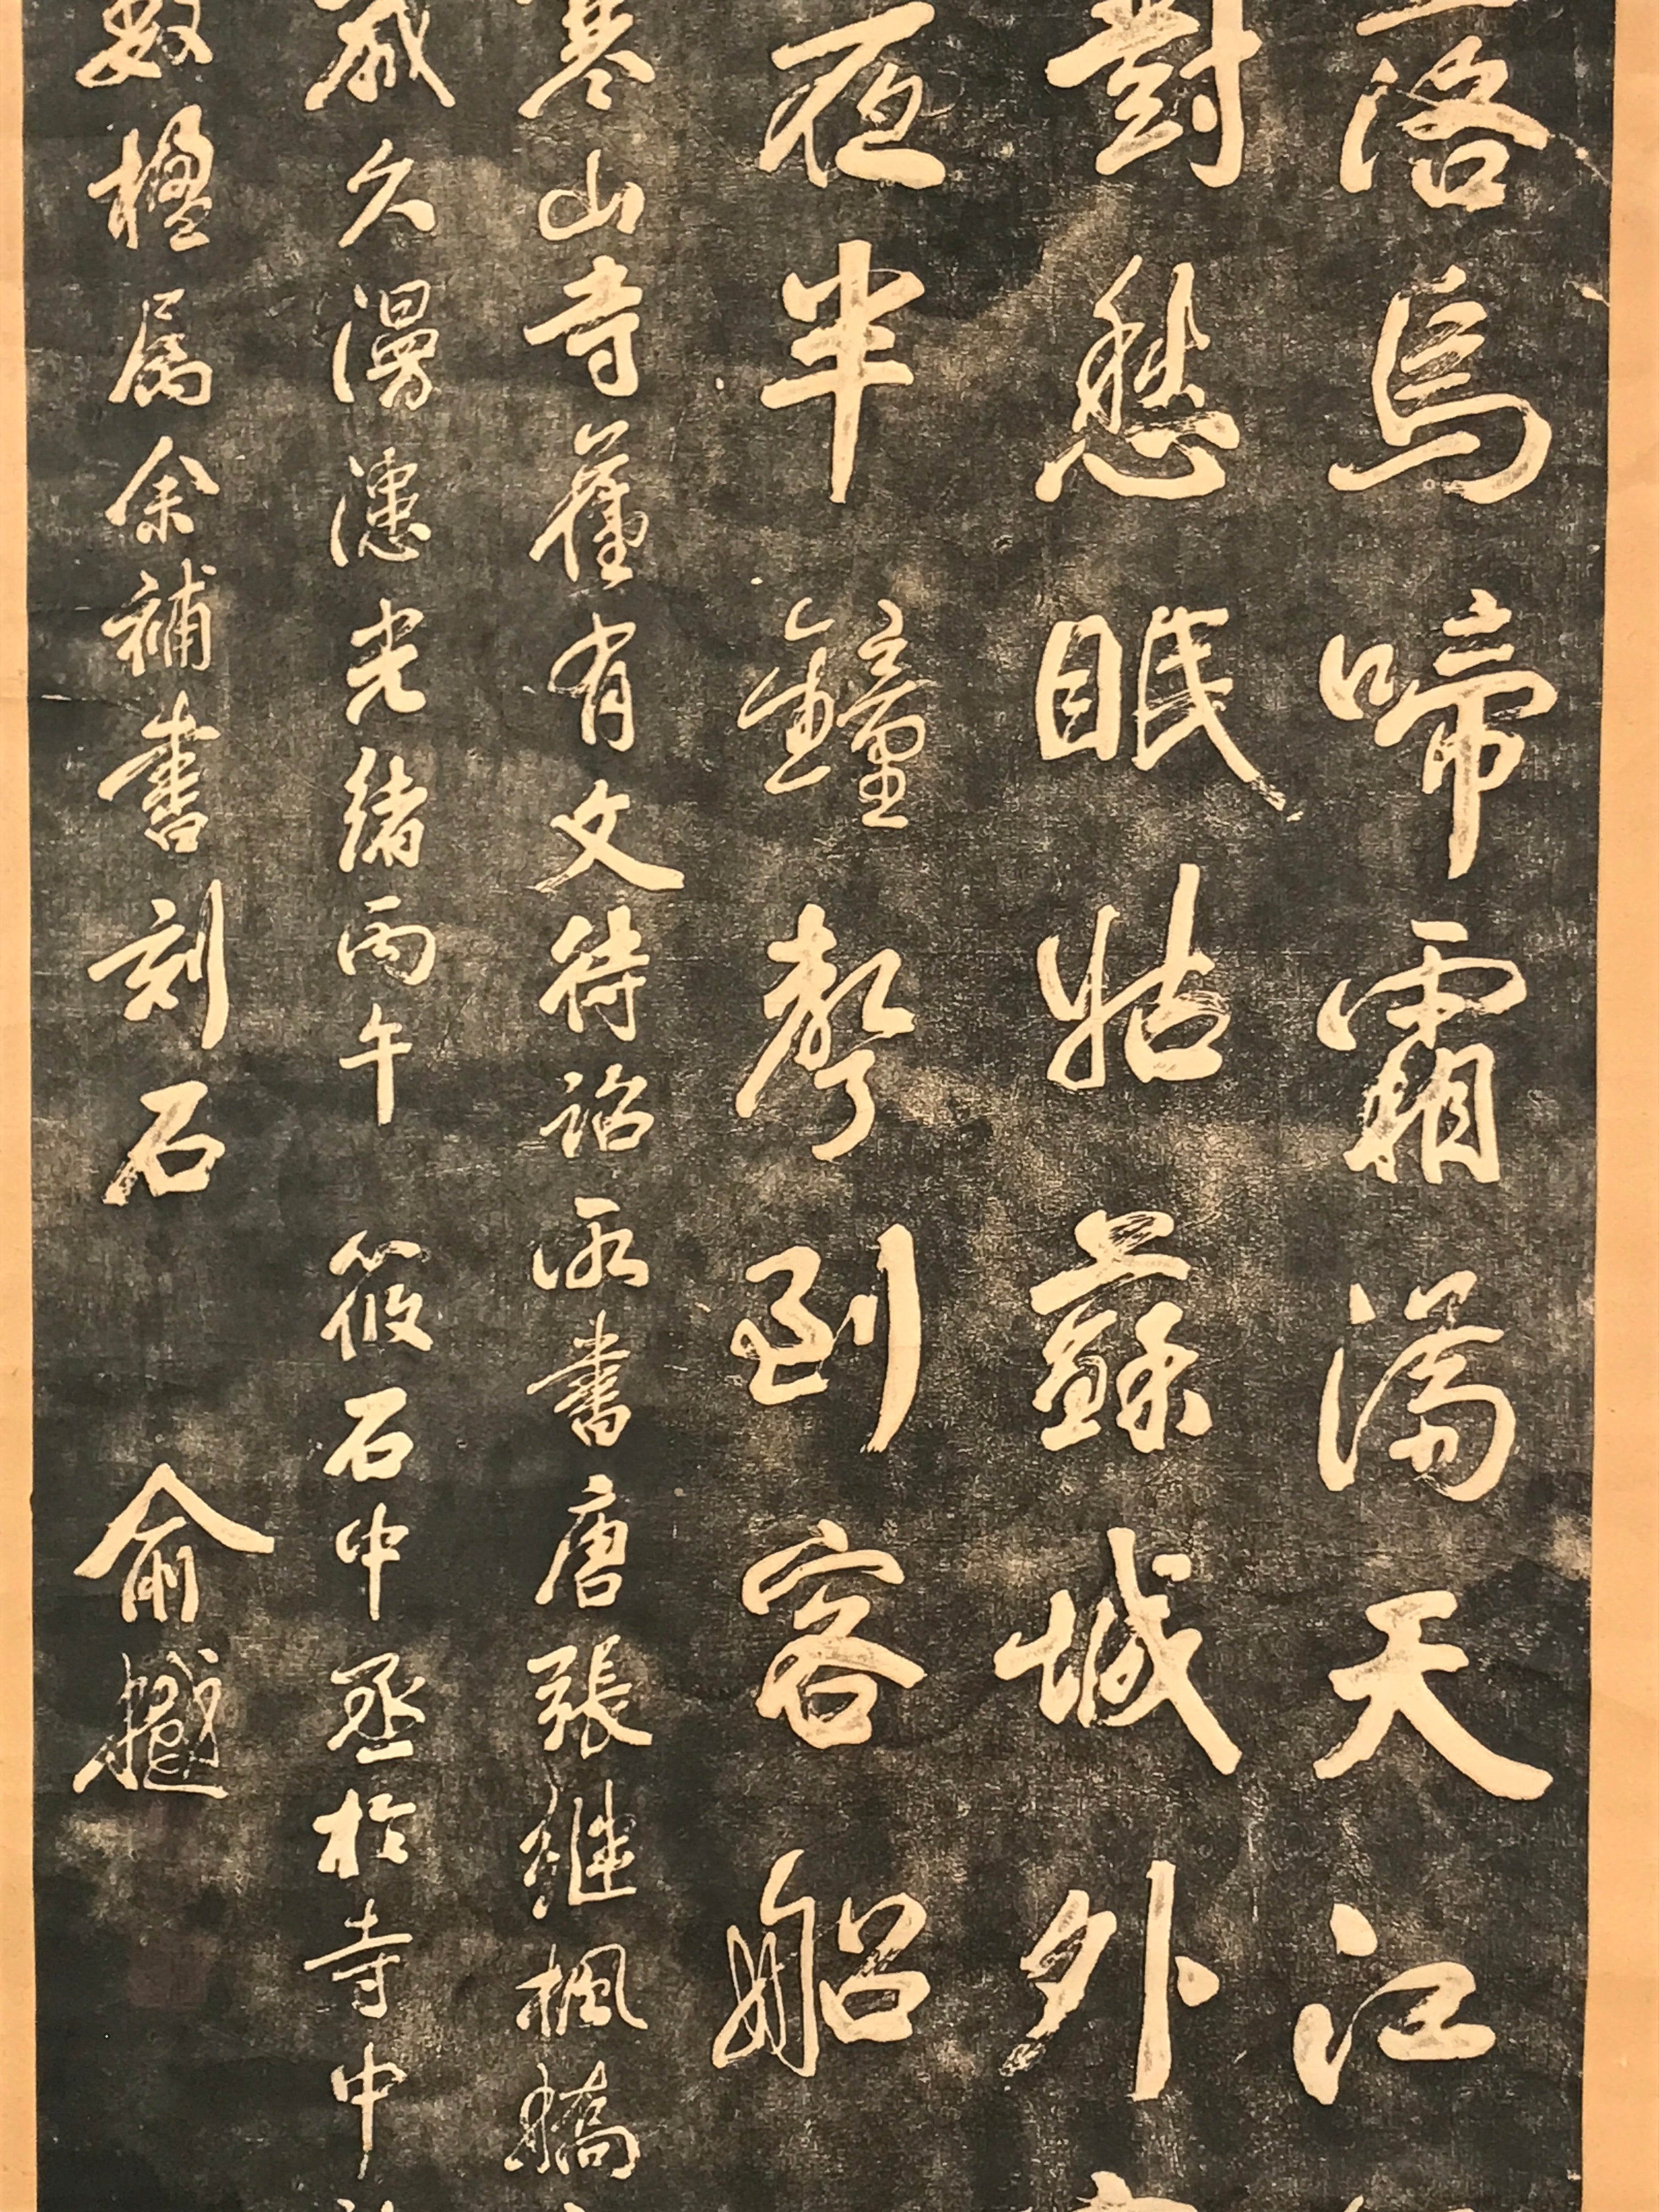 落烏啼霜滿天江
對愁眠姑蘇城外
夜半鐘聲到客船
寒山寺舊有文待詔所書唐張繼楓橋
歲久漫漶光緒丙午筱石中丞於寺中
數楹属余補書刻石俞樾